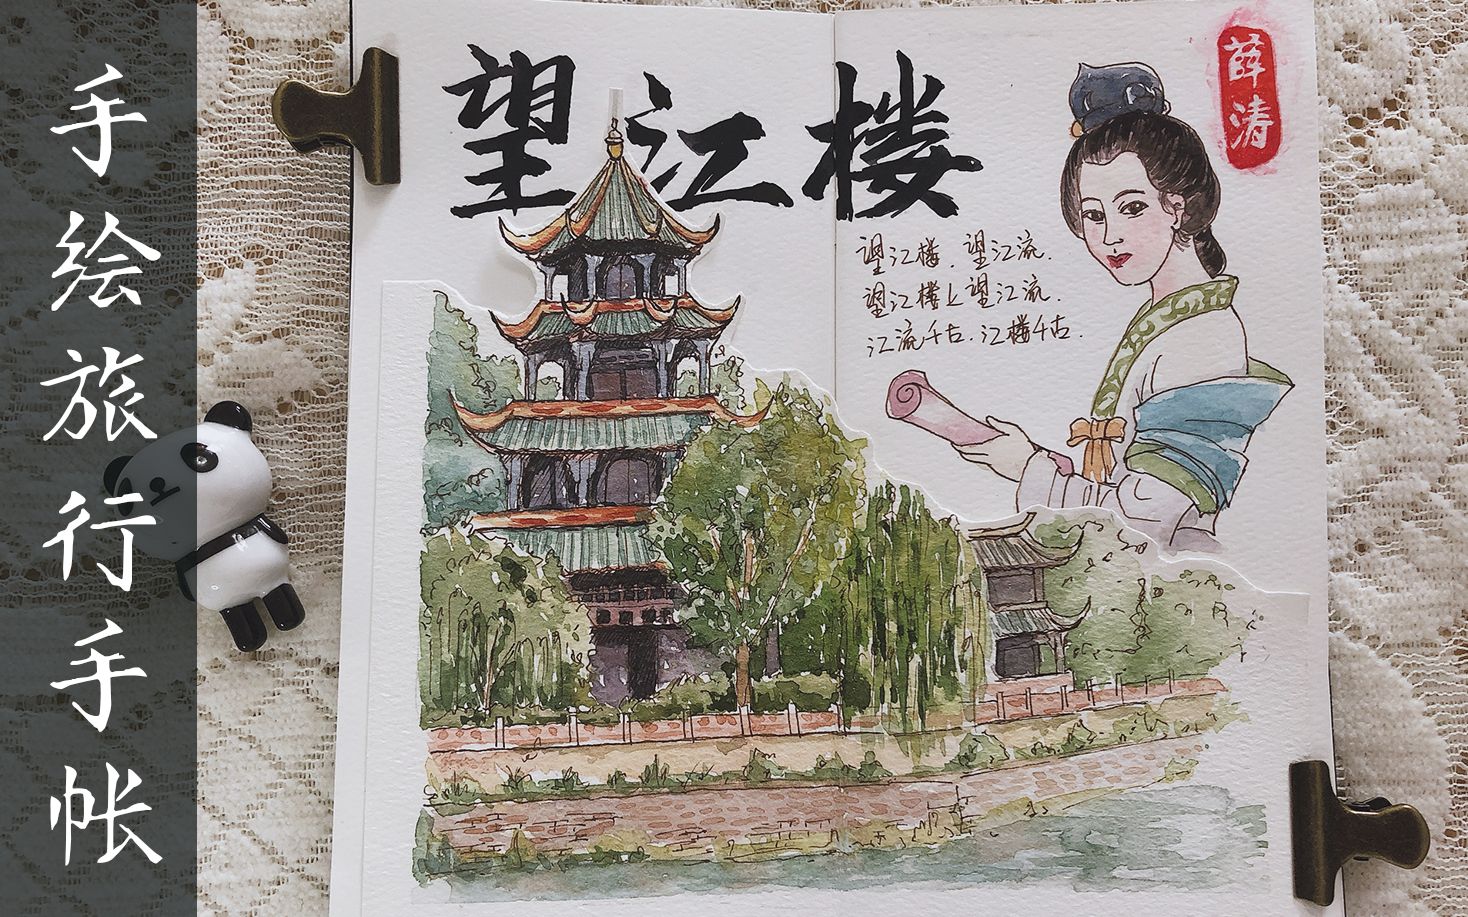 手绘旅行手帐
望江楼
薛涛
望江楼.望江流.
望江楼上望江流.
江流千古.江楼千古.